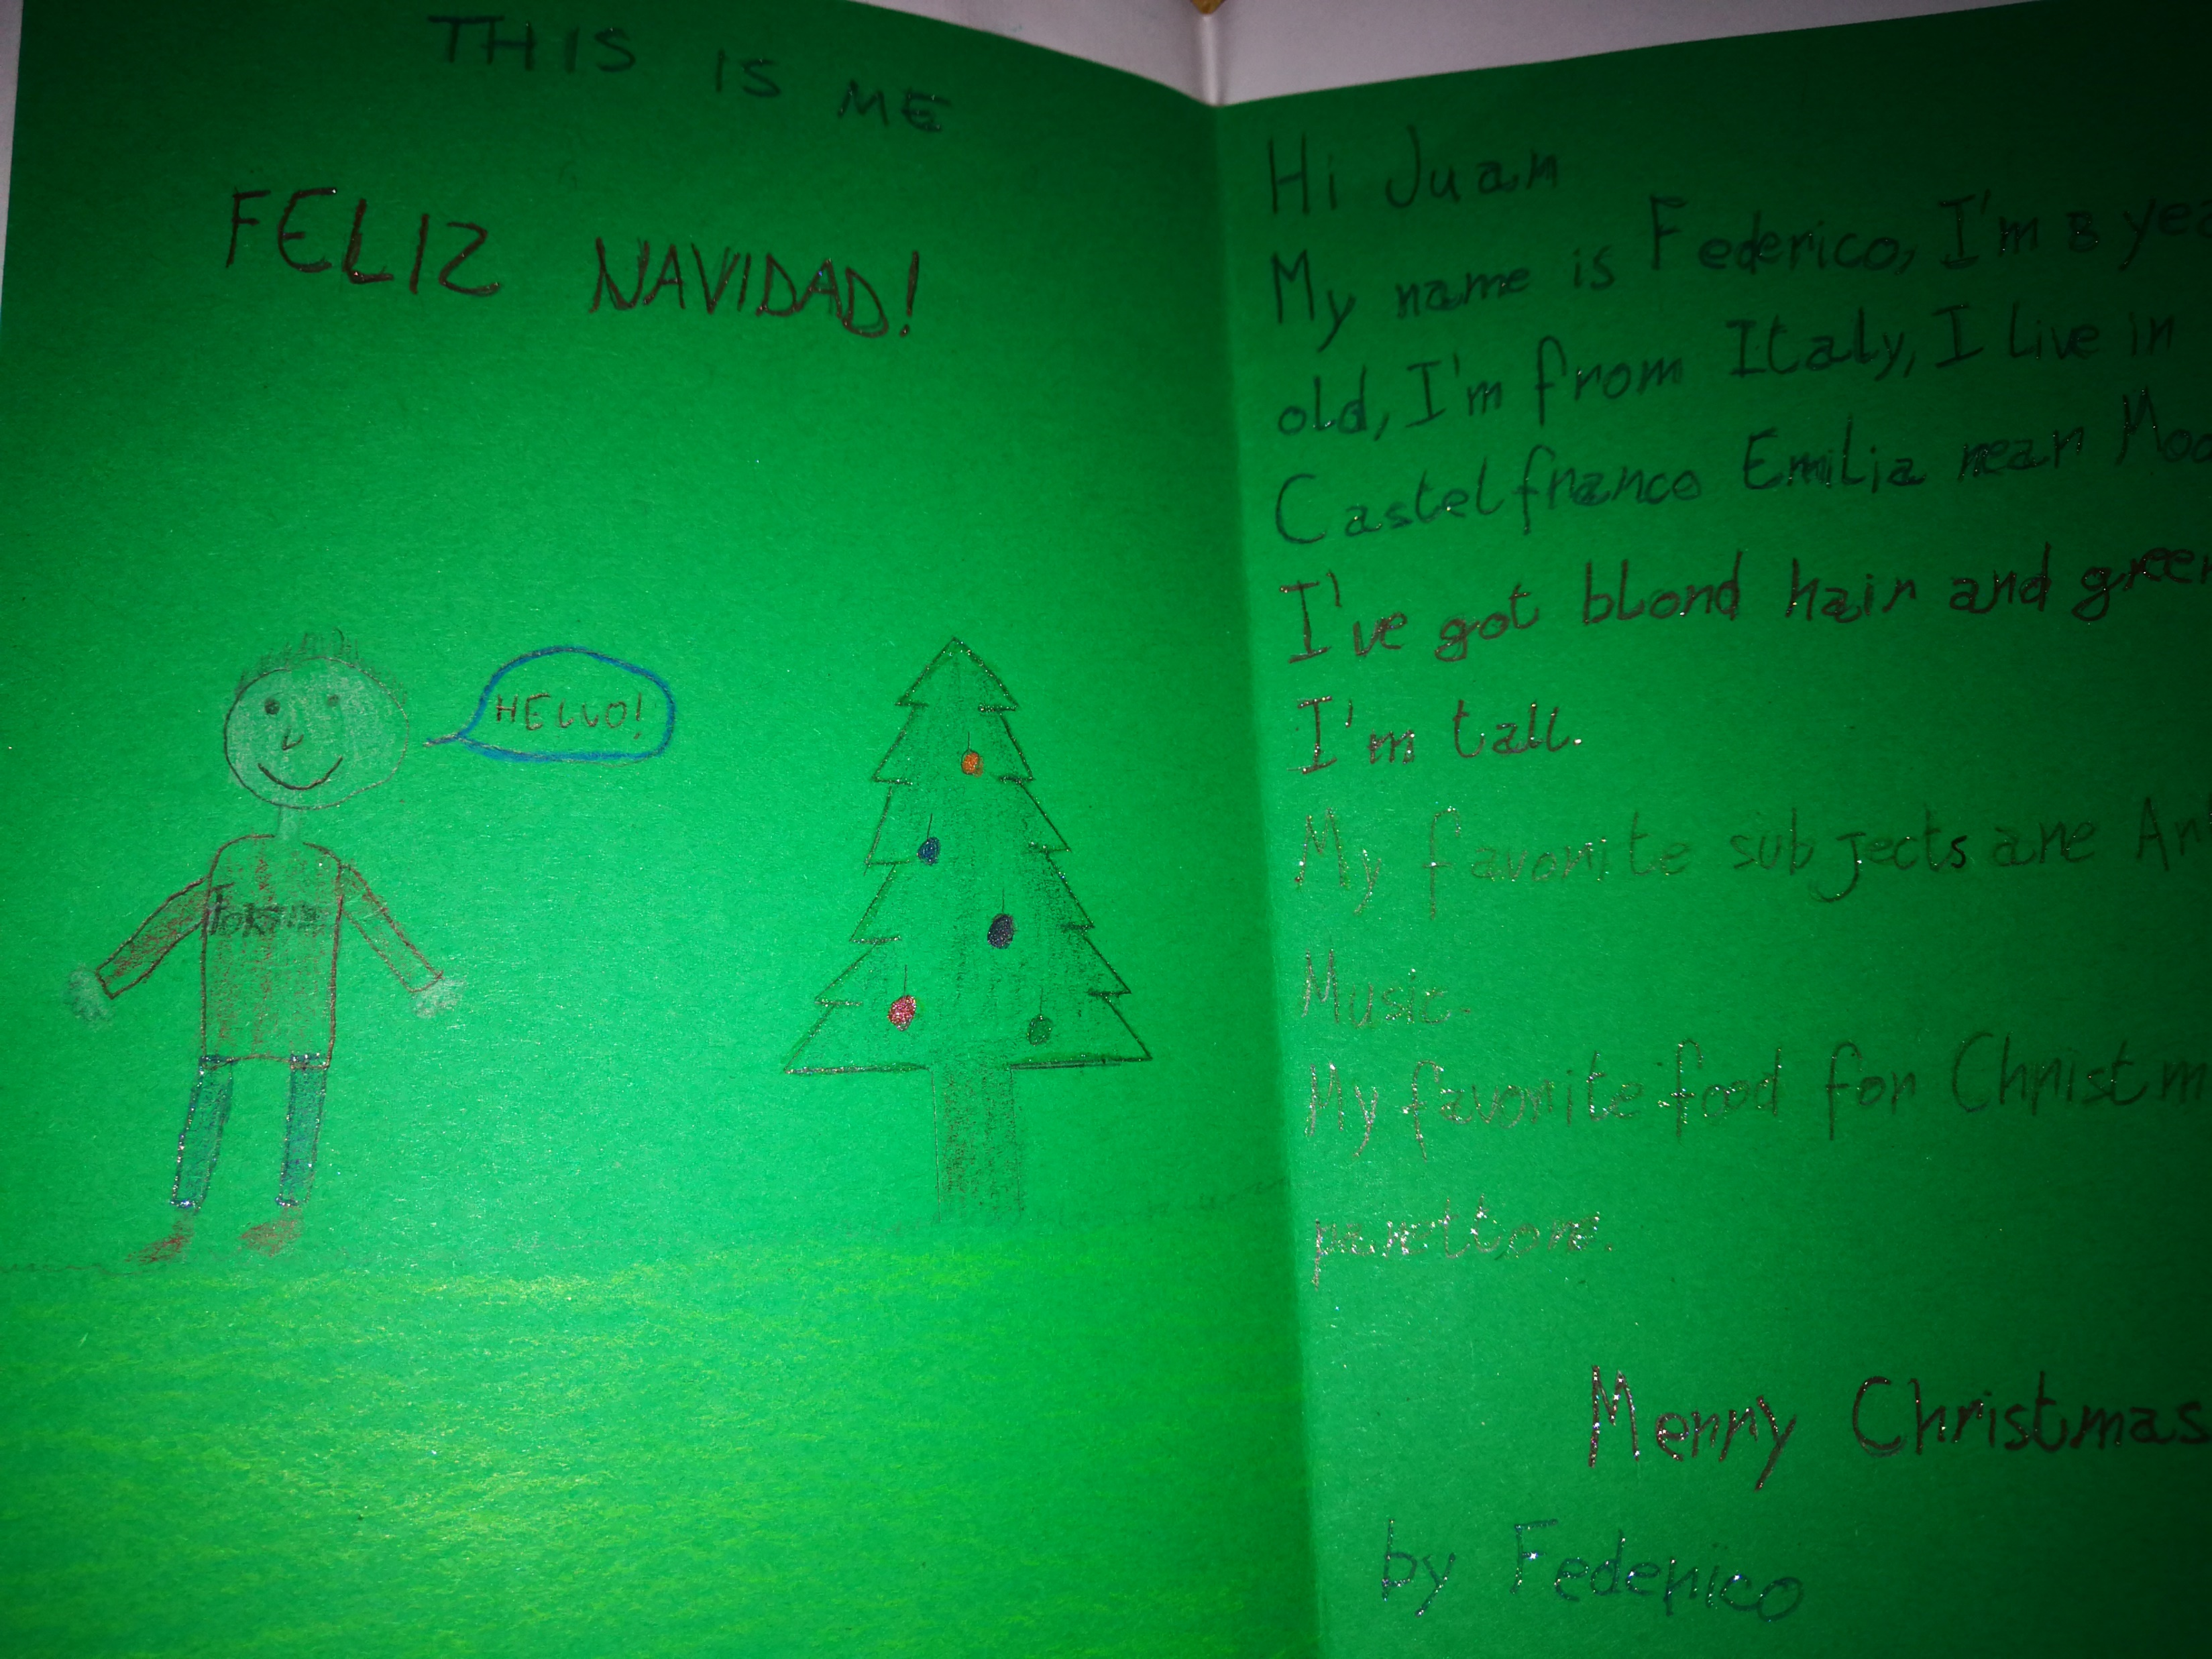 THIS IS ME
FELIZ NAVIDAD!
HELLO!
Hi Juan
My name is Federico, I'm 8
old, I'm from Italy, I live in
Castelfranco Emilia near
I've got blond hair and green
I'm tall.
My favorite subjects are
Music.
My favorite food for
panettone.
Merry Christmas
by Federico